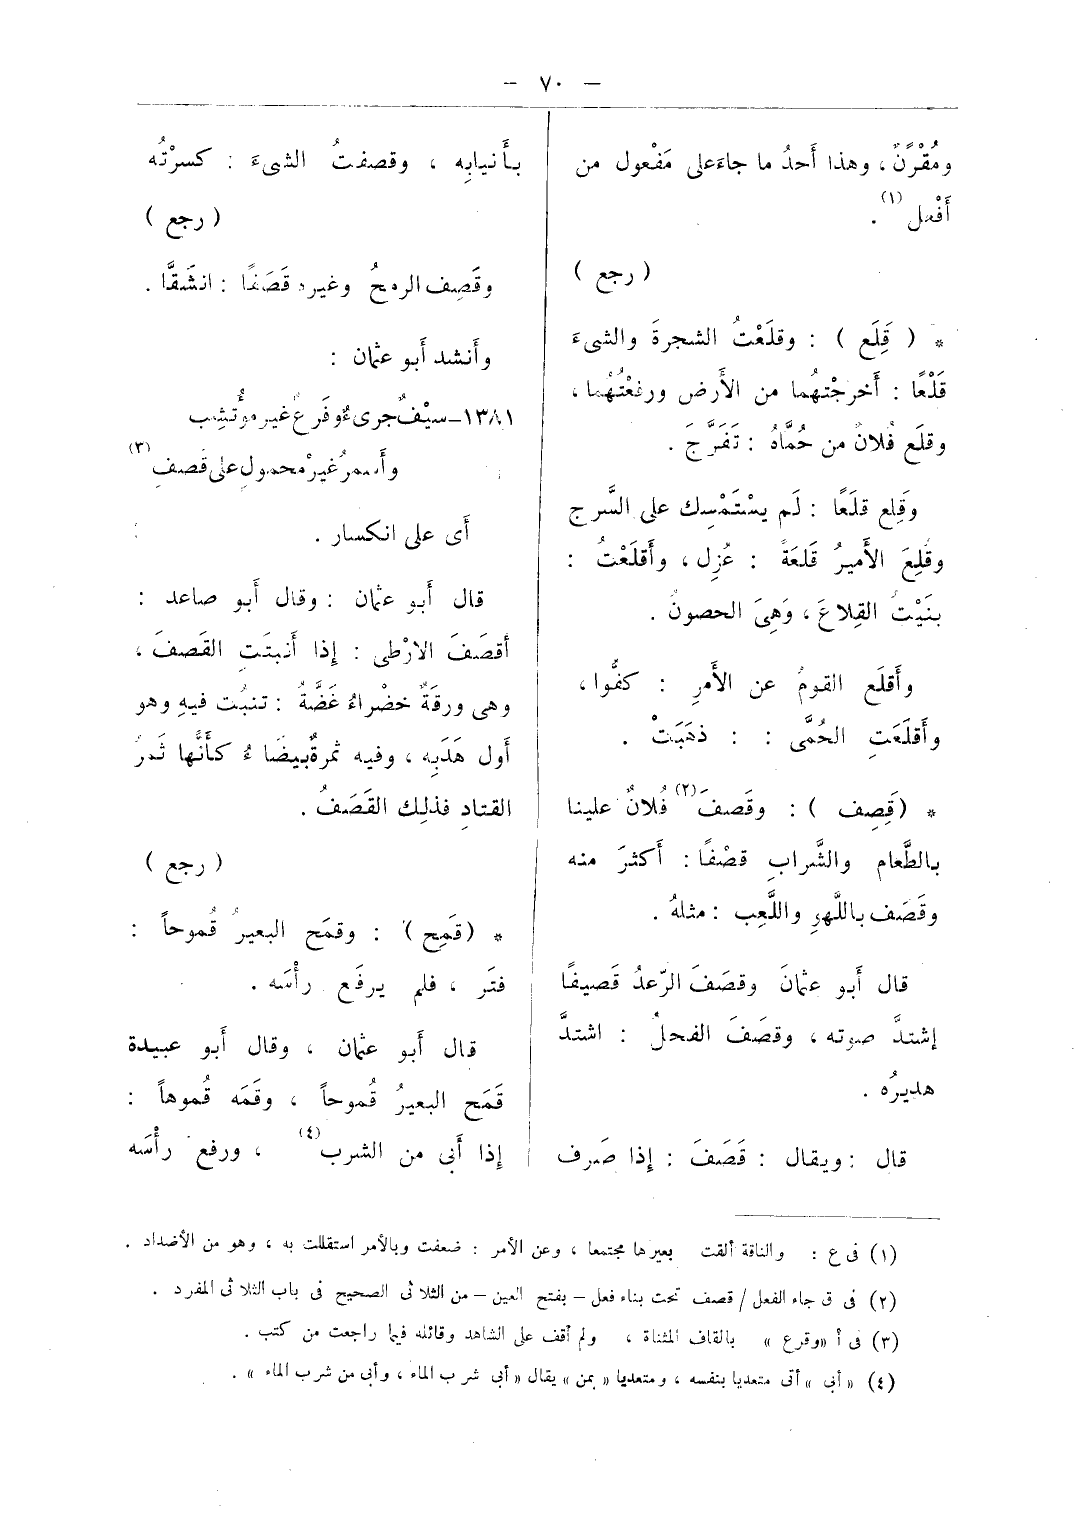 — ٧٠ —
ومُقْرَنٌ ، وهذا أَحدُ ما جاءَ على مَفْعول من
أَفْعل (١) .
( رجع )
* ( قَلَع ) : وقلَعْتُ الشجرةَ والشىءَ
قَلْعًا : أَخرجْتهُما من الأَرض ورفعْتُهُما ،
وقلَع فُلانٌ من حُمَّاهُ : تَفَرَّجَ .
وقَلِع قلَعًا : لَم يسْتَمْسِك على السَّرج
وقُلِعَ الأَميرُ قَلعَةً : عُزِل ، وأَقلَعْتُ :
بنَيْتُ القِلاعَ ، وَهىَ الحصونُ .
وأَقلَع القومُ عن الأَمرِ : كفُّوا ،
وأَقلَعَتِ الحُمَّى : : ذهَبَتْ .
* (قَصِف ) : وقَصفَ (٢) فُلانٌ علينا
بالطَّعام والشَّرابِ قصْفًا : أَكثرَ منه
وقَصَف باللَّهوِ واللَّعِب : مثلهُ .
قال أَبو عثمانَ وقصَفَ الرّعدُ قَصيفًا
إشتدَّ صوته ، وقصَفَ الفحلُ : اشتدَّ
هديرُه .
قال : ويقال : قَصَفَ : إذا صَرف
بأَنيابِه ، وقصفتُ الشىءَ : كسرْتُه
( رجع )
وقَصِف الرمحُ وغيره قَصَفًا : انشَقَّا .
وأَنشد أَبو عثمان :
١٣٨١ــ سيْفٌ جرىءٌ وفَرعٌ غير مؤْتشِب
وأَسمرُ غيرْ محمولٍ على قَصفِ (٣)
أَى على انكسار .
قال أَبو عثمان : وقال أَبو صاعد :
أَقصَفَ الارْطى : إذا أَنبتَتِ القَصفَ ،
وهى ورقَةٌ خضْراءُ غَضَّةُ : تنبُت فيهِ وهو
أول هَدَبِه ، وفيه ثمرةٌ بيضَاءُ كأَنَّها ثَمرُ
القتادِ فذلِك القَصَفُ .
( رجع )
* (قَمَح) : وقمَح البعيرُ قُموحاً :
فتَر ، فلم يرفَع رأْسَه .
قال أَبو عثمان ، وقال أَبو عبيدة
قَمَح البعيرُ قُموحاً ، وقمَه قُموهاً :
إذا أَبى من الشرب (٤) ، ورفع رأْسَه
(١) فى ع : والناقة ألقت بعيرها مجتمعا ، وعن الأمر : ضعفت وبالأمر استقللت به ، وهو من الأضداد .
(٢) فى ق جاء الفعل / قصف تحت بناء فعل – بفتح العين – من الثلاثى الصحيح فى باب الثلاثى المفرد .
(٣) فى أ «وقرع » بالقاف المثناة ، ولم أقف على الشاهد وقائله فيما راجعت من كتب .
(٤) « أبى » أتى متعديا بنفسه ، ومتعديا « بمن » يقال « أبى شرب الماء ، وأبى من شرب الماء » .